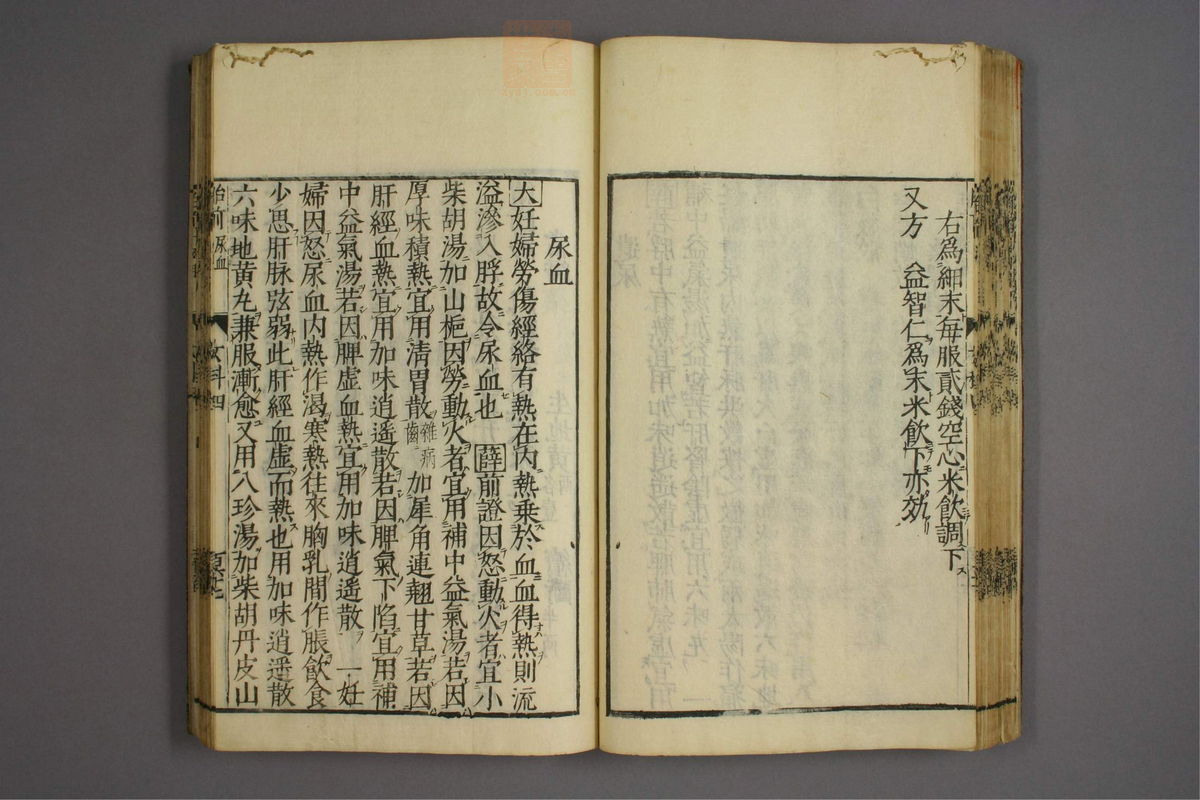 右爲細末每服貳錢空心米飲調下
又方　益智仁爲末米飲下亦効
尿血
大妊婦勞傷經絡有熱在內熱乘於血血得熱則流
溢滲入脬故令尿血也　薛前證因怒動火者宜小
柴胡湯加山梔因勞動火者宜用補中益氣湯若因
厚味積熱宜用清胃散雜病齒加犀角連翹甘草若因
肝經血熱宜用加味逍遙散若因脾氣下陷宜用補
中益氣湯若因脾虛血熱宜用加味逍遙散　一妊
婦因怒尿血內熱作渴寒熱往來胸乳間作脹飲食
少思肝脉弦弱此肝經血虛而熱也用加味逍遥散
六味地黄丸兼服漸愈又用八珍湯加柴胡丹皮山
胎前　尿血
女科四